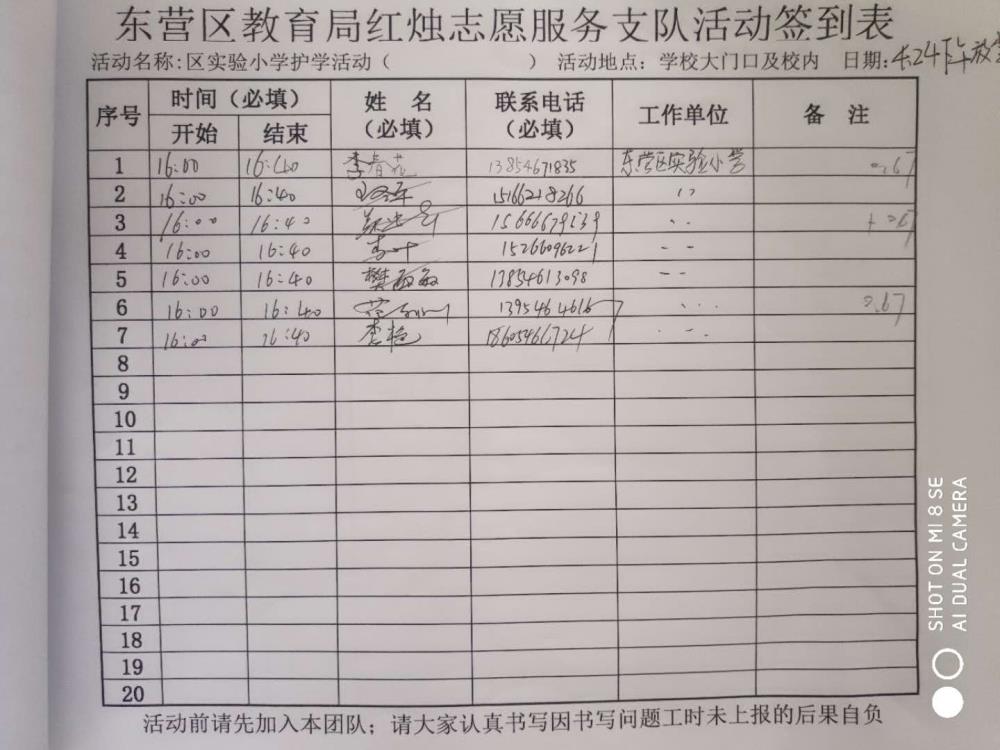 东营区教育局红烛志愿服务支队活动签到表
活动名称:区实验小学护学活动（ ） 活动地点：学校大门口及校内 日期:4.24下午放学
序号 时间（必填） 姓 名（必填） 联系电话（必填） 工作单位 备 注
开始 结束
1 16:00 16:40 李春花 13854671835 东营区实验小学 0.67
2 16:00 16:40 15166218266 〃
3 16:00 16:40 0.67
4 16:00 16:40 李叶
5 16:00 16:40 樊敏敏 13854613098
6 16:00 16:40 0.67
7 16:00 16:40 李艳 18605466724
8
9
10
11
12
13
14
15
16
17
18
19
20
活动前请先加入本团队；请大家认真书写因书写问题工时未上报的后果自负
SHOT ON MI 8 SE
AI DUAL CAMERA